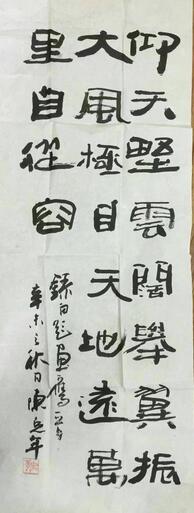 仰天野雲闊舉翼振
大風極目天地遠萬
里自從容
錄自題畫鷹一首
辛未之秋日陳